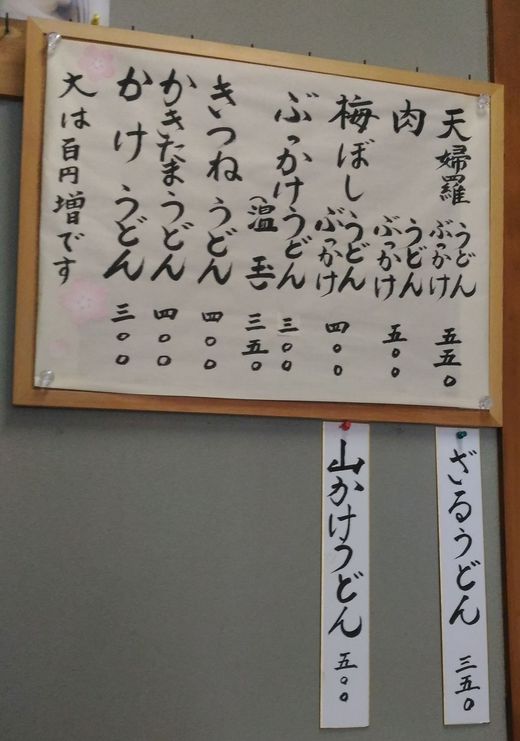 天婦羅 うどん ぶっかけ 五五〇
肉 うどん ぶっかけ 五〇〇
梅ぼし うどん ぶっかけ 四〇〇
ぶっかけうどん 三〇〇
(温玉) 三五〇
きつねうどん 四〇〇
かきたまうどん 四〇〇
かけうどん 三〇〇
大は百円増です
ざるうどん 三五〇
山かけうどん 五〇〇